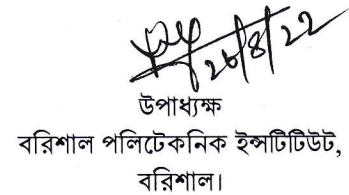 ২৮/৪/২২
উপাধ্যক্ষ
বরিশাল পলিটেকনিক ইন্সটিটিউট,
বরিশাল।